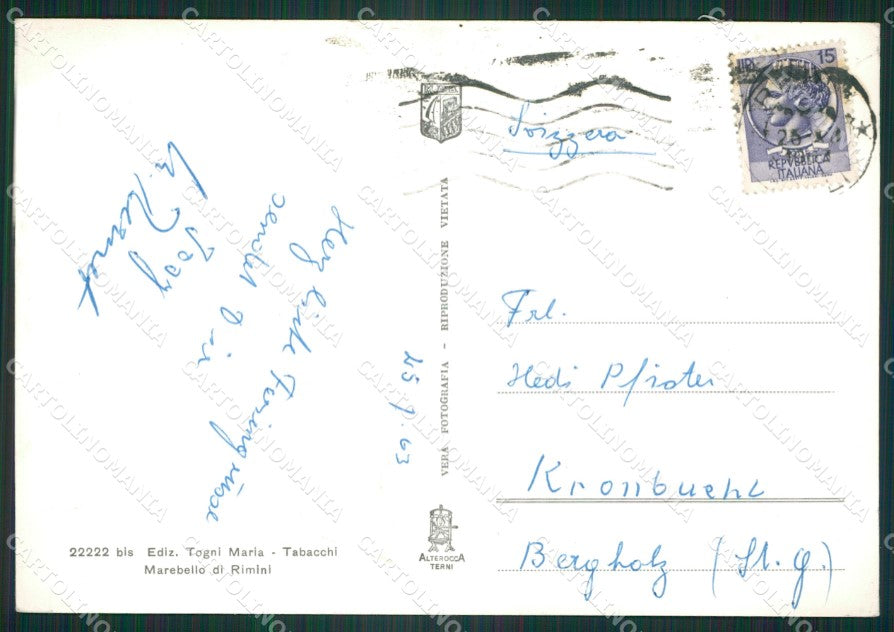 Svizzera
LIRE 15
REPVBBLICA
ITALIANA
Herz liche Feriengrüsse
sendet Dir
Josy
25.9.63
VERA FOTOGRAFIA - RIPRODUZIONE VIETATA
Frl.
Hedi Pfister
Kronbuehl
Bergholz (St. G.)
22222 bis Ediz. Togni Maria - Tabacchi
Marebello di Rimini
ALTEROCCA
TERNI
CARTOLINOMANIA